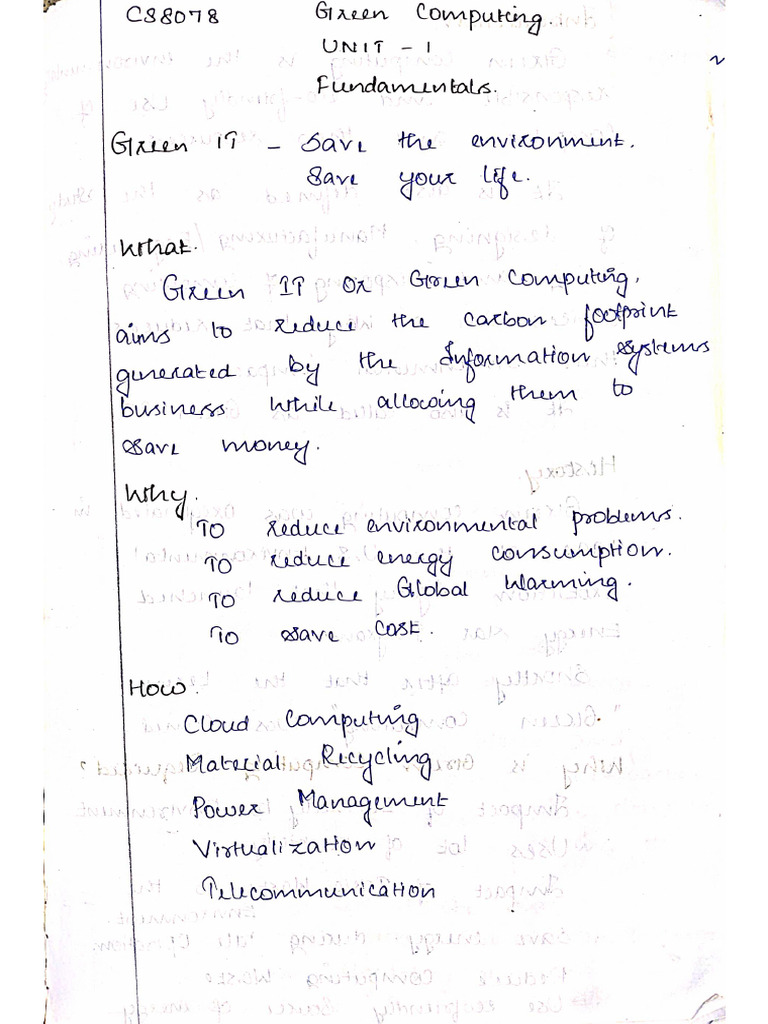 CS8078 Green Computing.
UNIT - 1
Fundamentals.
Green IT - Save the environment.
Save your life.
What.
Green IT or Green Computing,
aims to reduce the carbon footprint
generated by the Information systems
business while allowing them to
save money.
Why.
To reduce environmental problems.
To reduce energy consumption.
To reduce Global Warming.
To save Cost.
How.
Cloud Computing
Material Recycling
Power Management
Virtualization
Telecommunication